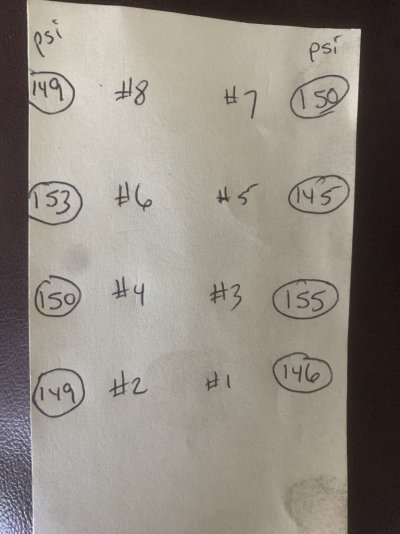 psi psi
149 #8 #7 150
153 #6 #5 145
150 #4 #3 155
149 #2 #1 146